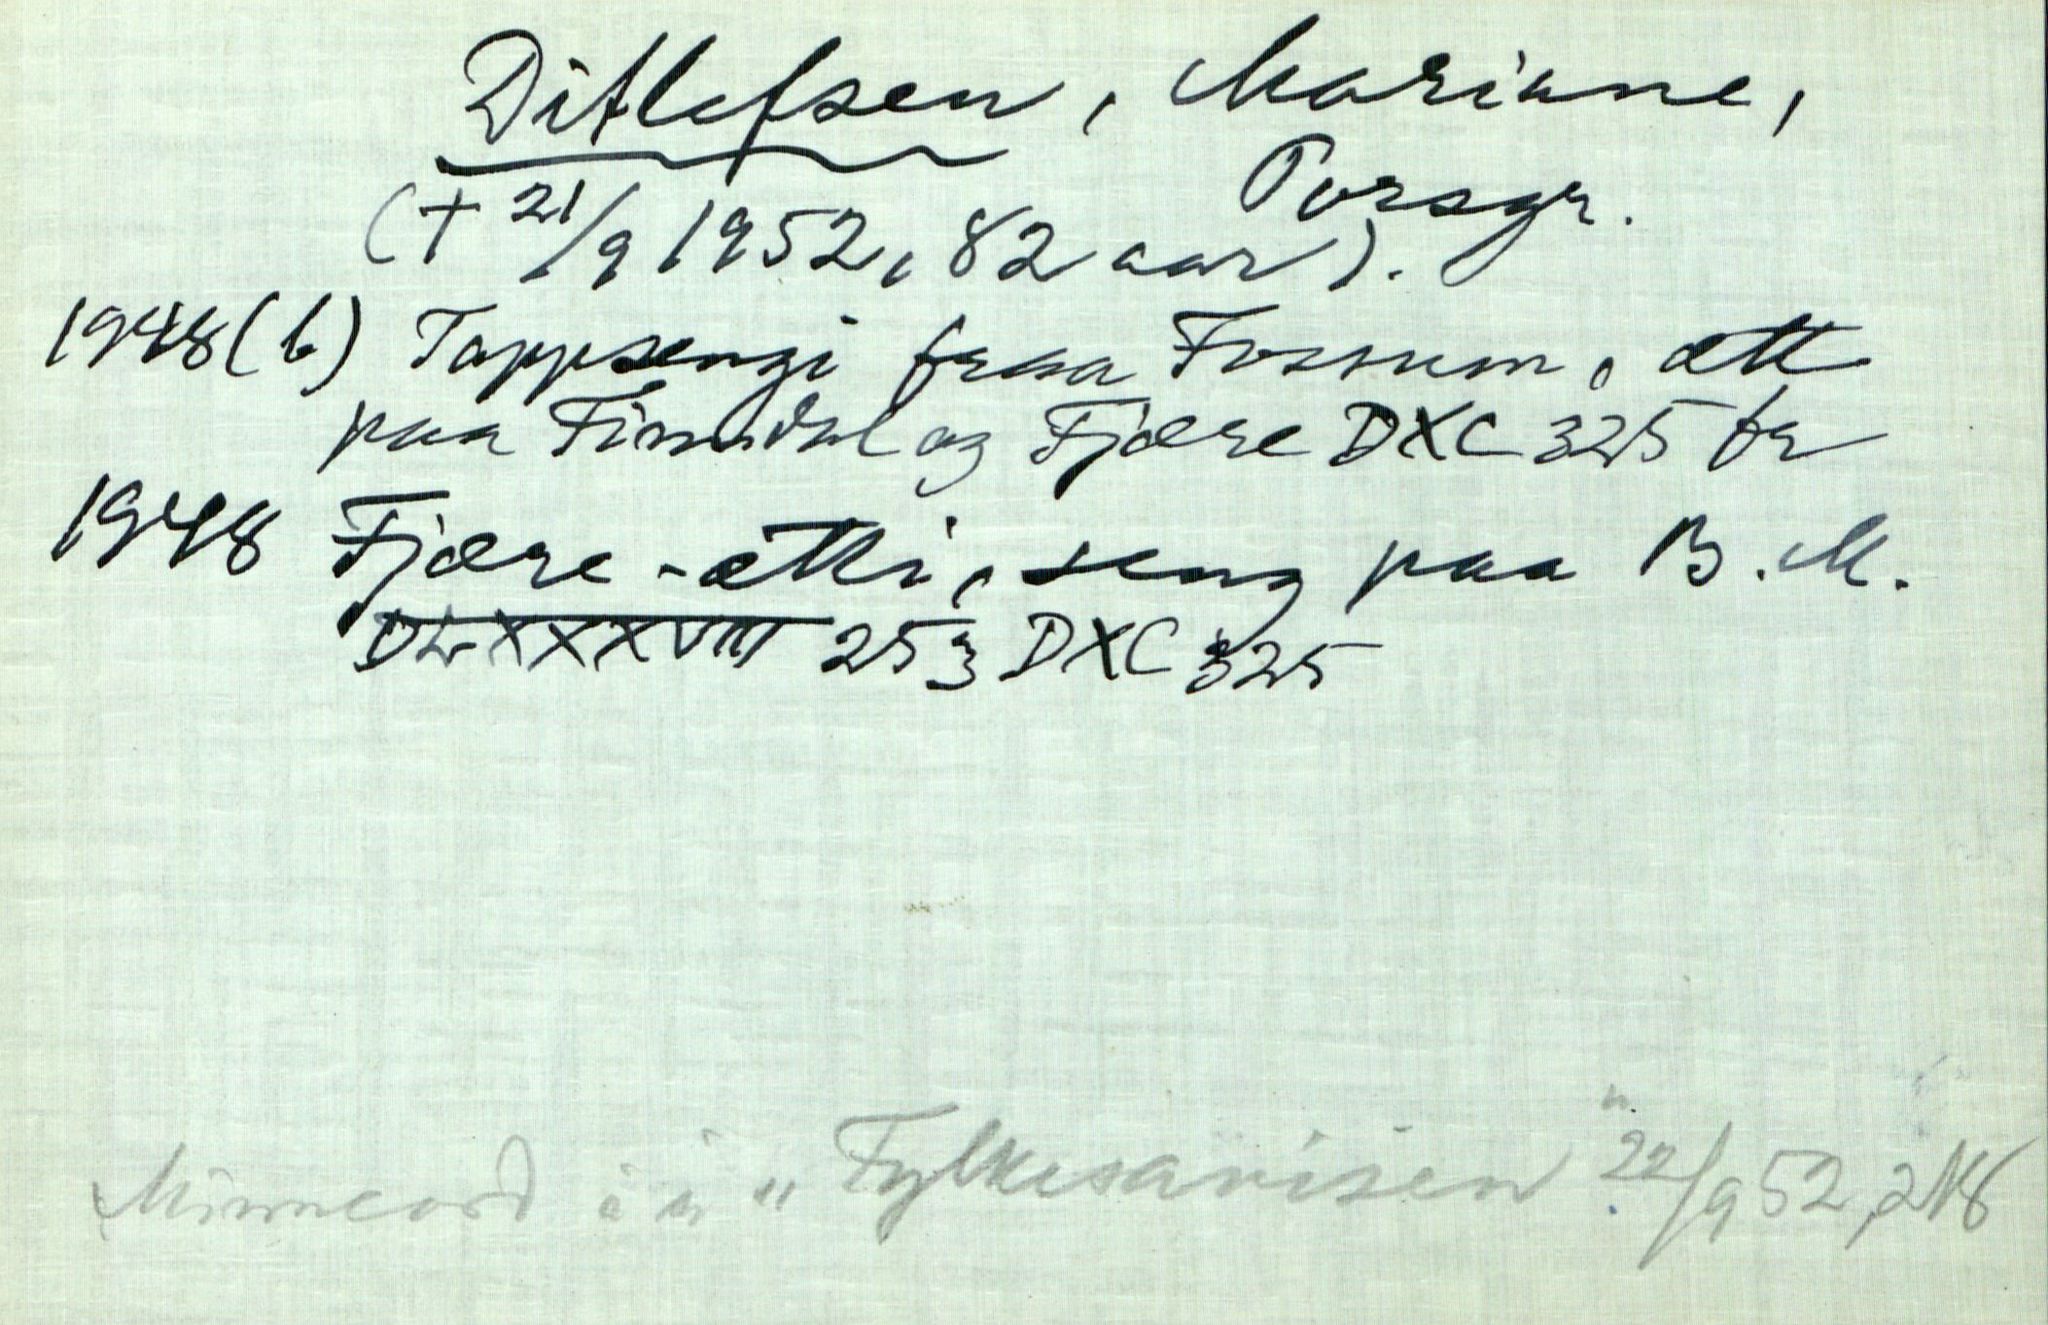 Ditlefsen, Mariane,
Porsgr.
(† 21/9 1952, 82 aar).
1948(b) Tappsengi fraa Fossum, ætt
paa Finndal og Fjære DXC 325 fr
1948 Fjære-ætti, seng paa B.M.
DLXXXVIII 253 DXC 325
Minneord i "Fylkesavisen" 22/9 52,